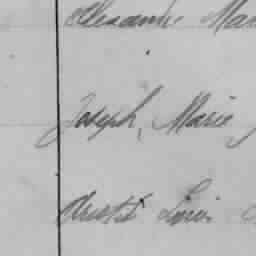 Alexandre Mar
Joseph, Marie
Louis